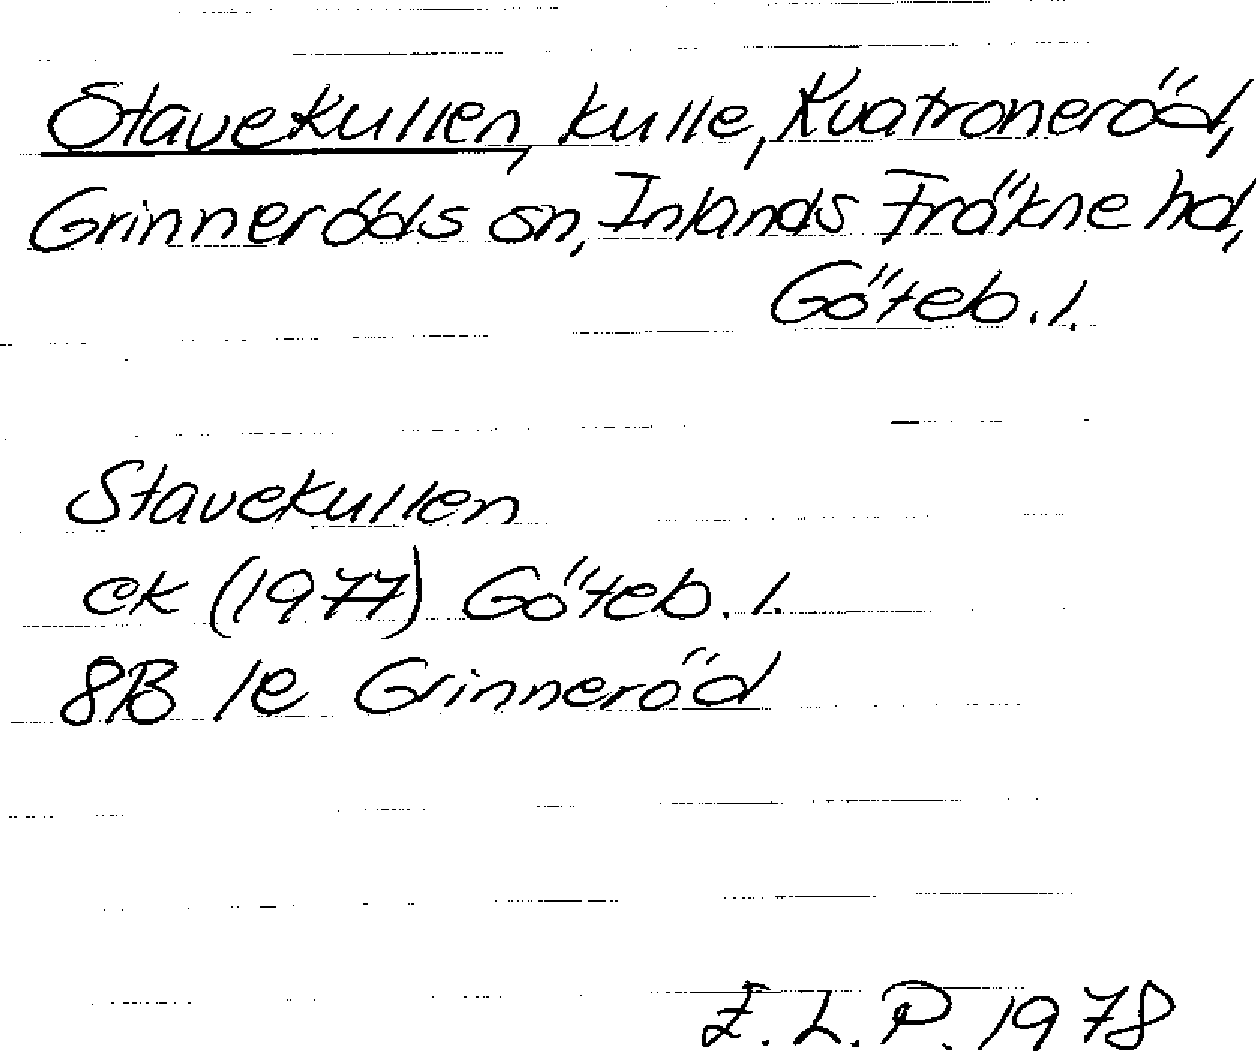 Stavekullen, kulle, Kvatroneröd,
Grinneröds sn, Inlands Fräkne hd,
Göteb. l.
Stavekullen
ek (1977) Göteb. l.
8B 1e Grinneröd
E. L. P. 1978